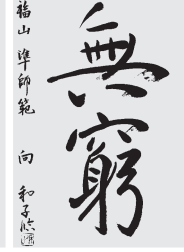 無窮
福山 準師範 向 和子臨